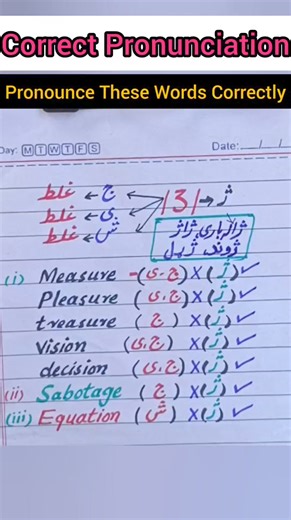 Correct Pronunciation
Pronounce These Words Correctly
Day: M T W T F S Date: __/__/__
غلط ← ج
غلط ← ی
غلط ← ش
/ʒ/ → ژ
ژالہ باری، ژاژ
ژوند، ژیل
(i) Measure - (ج، ی) X (ژ) ✓
Pleasure (ج، ی) X (ژ) ✓
treasure (ج) X (ژ) ✓
Vision (ج، ی) X (ژ) ✓
decision (ج، ی) X (ژ) ✓
(ii) Sabotage (ج) X (ژ) ✓
(iii) Equation (ش) X (ژ) ✓